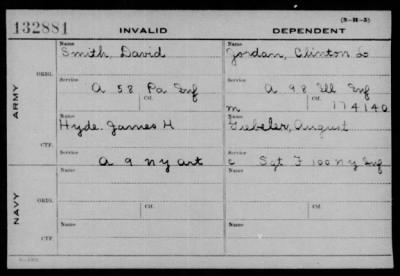 (3-H-3)
132881 INVALID DEPENDENT
Name Name
Smith, David Jordan, Clinton Lo
ARMY
ORIG.
Service Service
A 58 Pa Inf A 98 Ill Inf
Ctf. Ctf.
m 174140
Name Name
Hyde James H Giebeler, August
CTF.
Service Service
A 9 NY Art C Sgt F 100 N Y Inf
NAVY
Name Name
ORIG.
Ctf. Ctf.
Name Name
CTF.